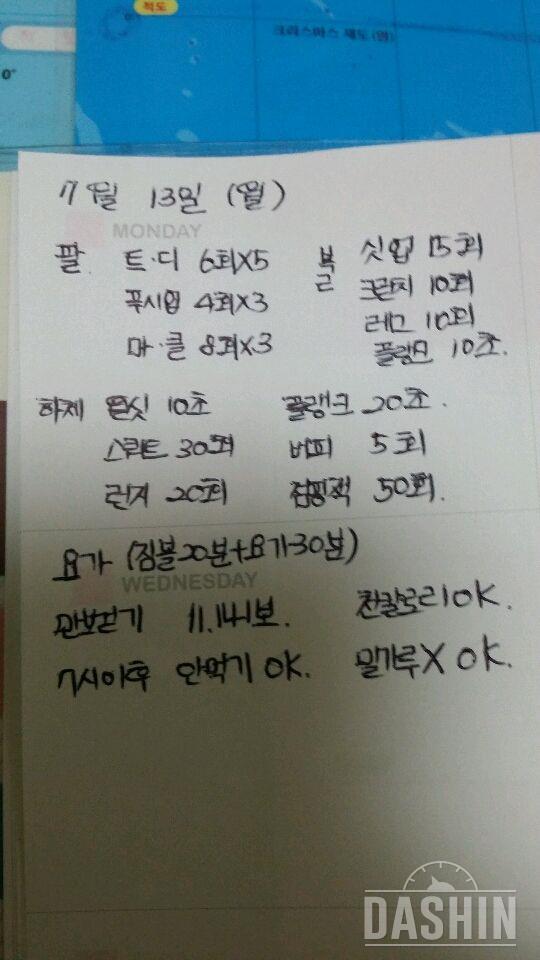 적도
크리스마스 제도 (영)
0°
7월 13일 (월)
MONDAY
팔 트·디 6회X5
푸시업 4회X3
마·클 8회X3
복근 싯업 15회
크런치 10회
레그 10회
플랭크 10초.
하체 월싯 10초
스쿼트 30회
런지 20회
플랭크 20초.
버피 5회
점핑잭 50회.
요가 (짐볼20분+요가30분)
WEDNESDAY
만보걷기 11.141보.
천칼로리 OK.
7시이후 안먹기 OK.
밀가루X OK.
DASHIN